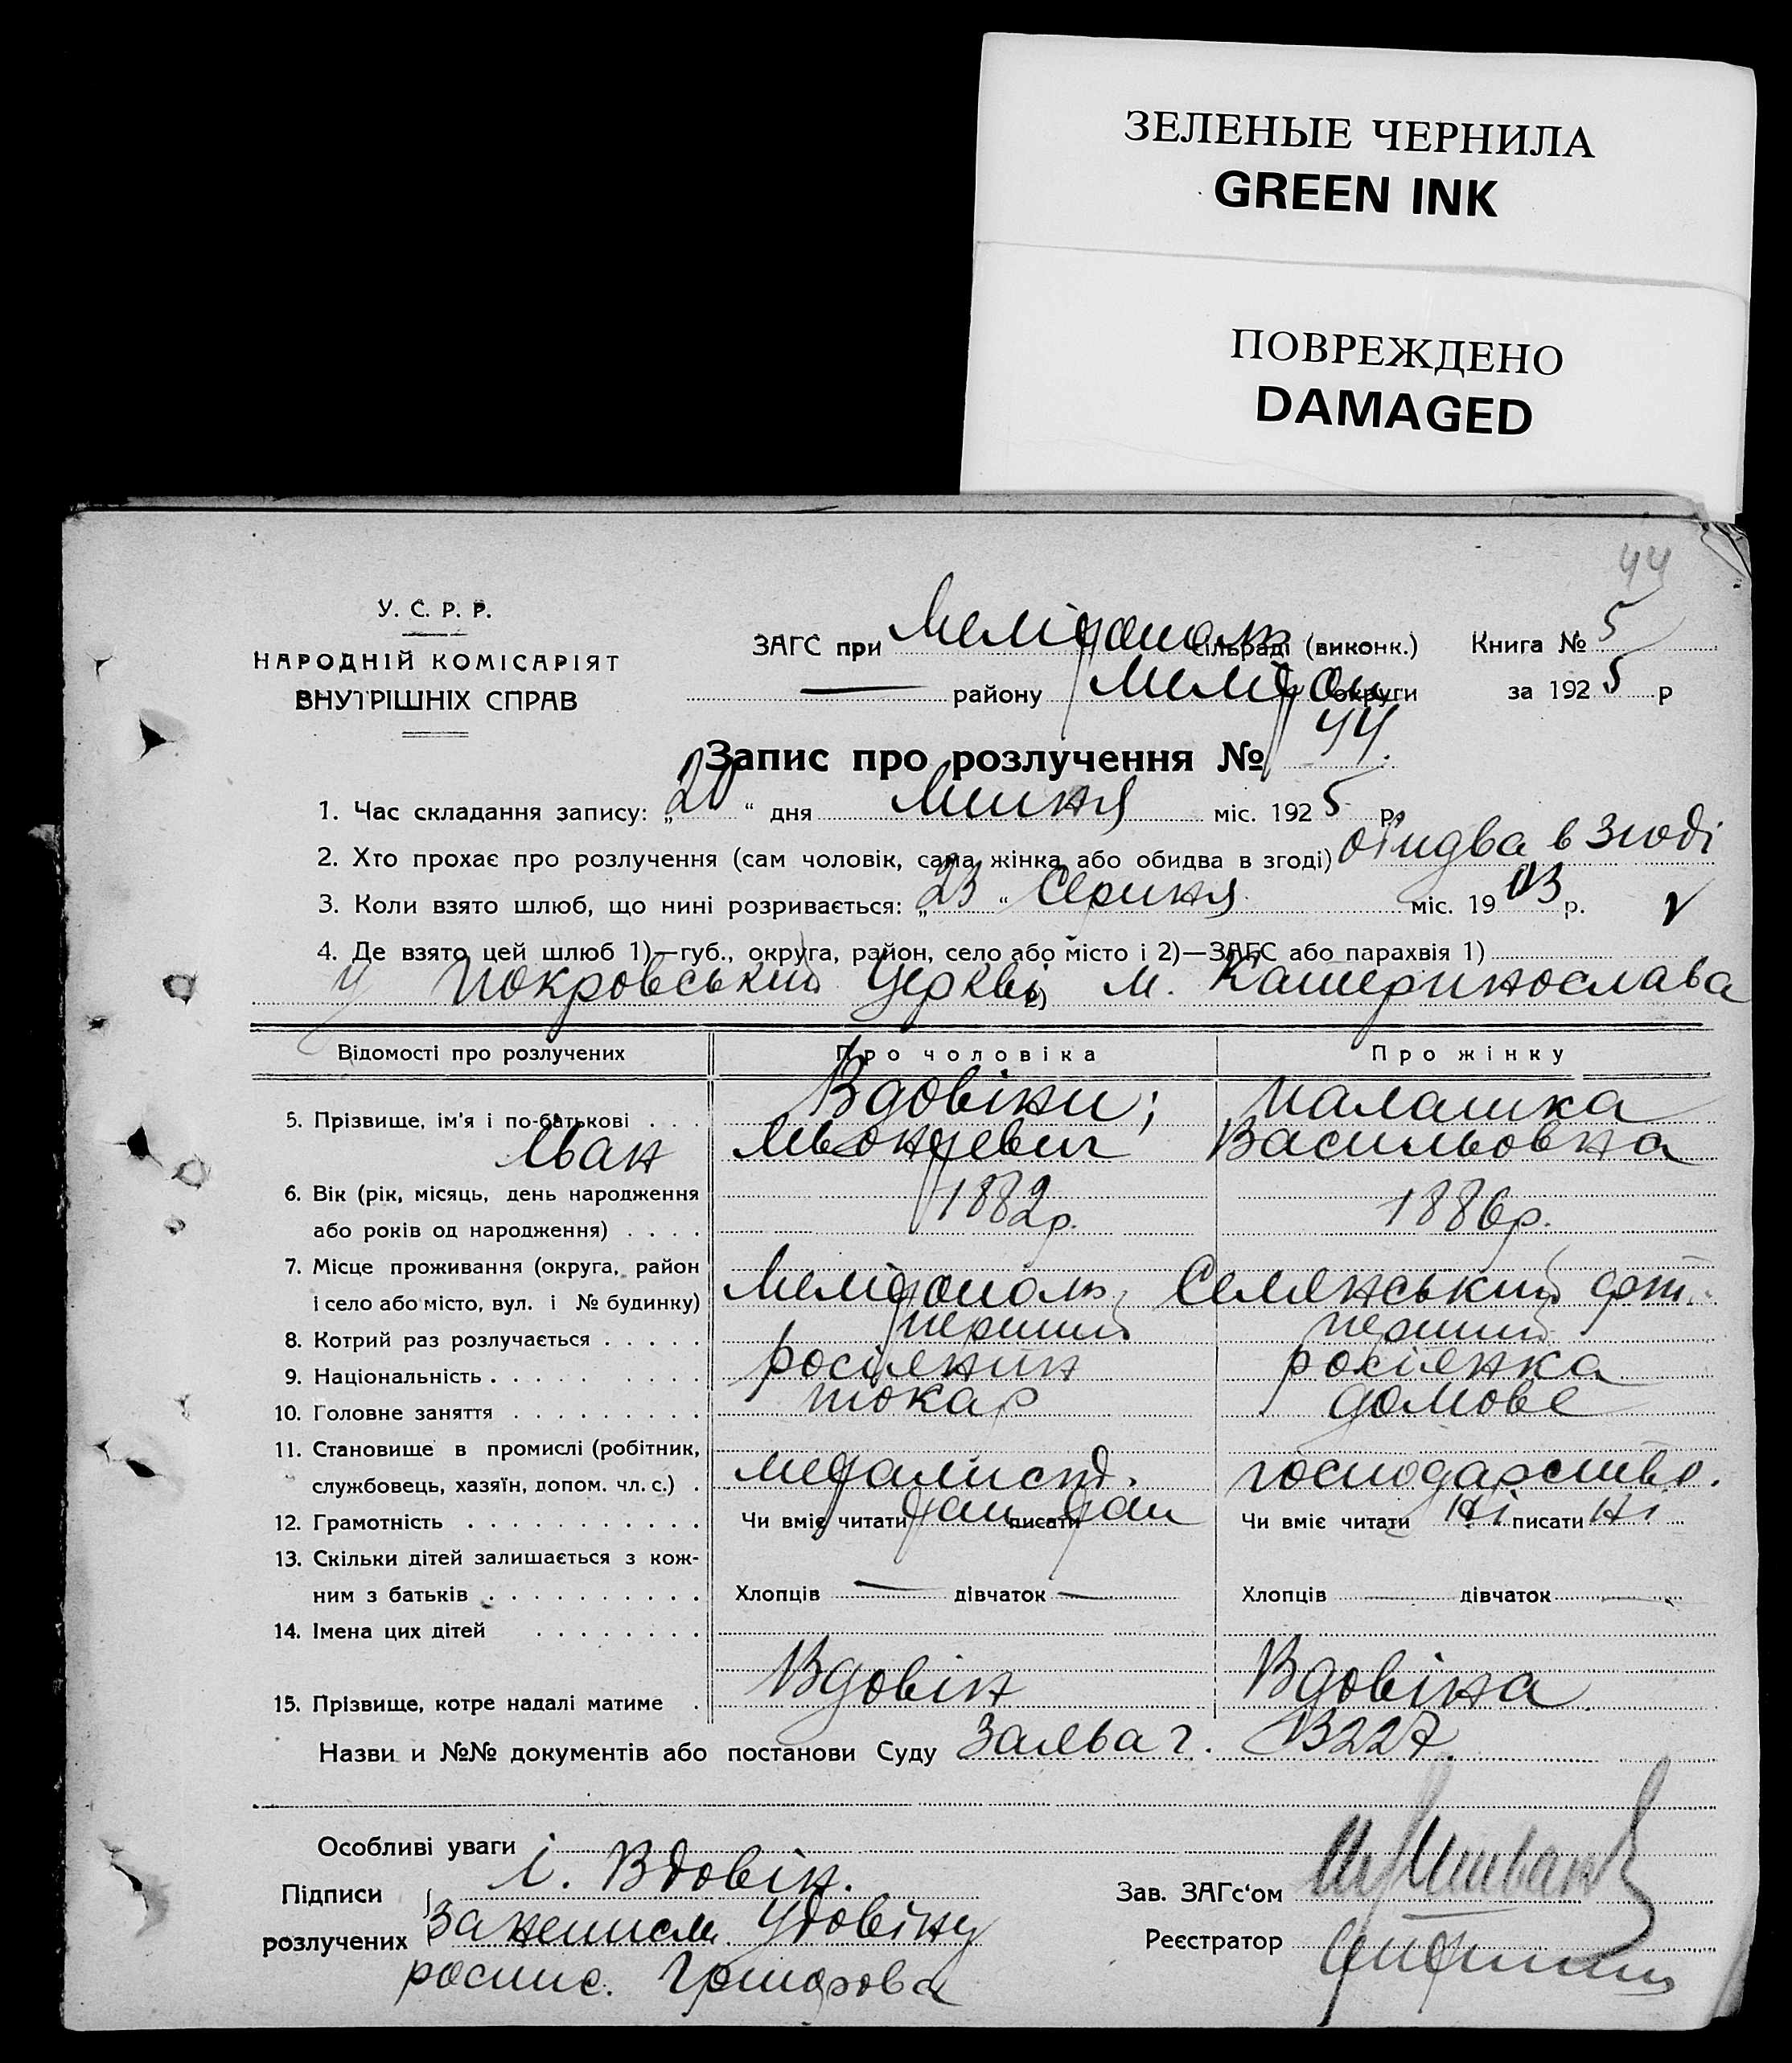 ЗЕЛЕНЫЕ ЧЕРНИЛА
GREEN INK
ПОВРЕЖДЕНО
DAMAGED
44
У. С. Р. Р.
НАРОДНІЙ КОМІСАРІЯТ
ВНУТРІШНІХ СПРАВ
ЗАГС при Мелітополь сільраді (виконк.) Книга № 5
— району Меліт округи за 1925 р
Запис про розлучення № 44.
1. Час складання запису: „20“ дня Липня міс. 1925 р.
2. Хто прохає про розлучення (сам чоловік, сама жінка або обидва в згоді) обидва в згоді
3. Коли взято шлюб, що нині розривається: „23“ Серпня міс. 1903 р.
4. Де взято цей шлюб 1)—губ., округа, район, село або місто і 2)—ЗАГС або парахвія 1)
у Покровський Церкві 2) м. Катеринослава
Відомості про розлучених Про чоловіка Про жінку
5. Прізвище, ім'я і по-батькові . . . Вдовіни; Малашка
Іван Леонтевич Васильовна
6. Вік (рік, місяць, день народження
або років од народження) . . . . 1882р. 1886р.
7. Місце проживання (округа, район
і село або місто, вул. і № будинку) Мелітополь, Селянський
8. Котрий раз розлучається . . . . . перший перший
9. Національність . . . . . . . . росіянин росіянка
10. Головне заняття . . . . . . . . . токар домове
11. Становище в промислі (робітник,
службовець, хазяїн, допом. чл. с.) . металист. господарство.
12. Грамотність . . . . . . . . . . . Чи вміє читати так писати так Чи вміє читати ні писати ні
13. Скільки дітей залишається з кож-
ним з батьків . . . . . . . . . . Хлопців — дівчаток — Хлопців — дівчаток —
14. Імена цих дітей . . . . . . . .
15. Прізвище, котре надалі матиме . Вдовін Вдовіна
Назви и №№ документів або постанови Суду Заява ч. 3227.
Особливі уваги
Підписи І. Вдовін. Зав. ЗАГс‘ом
розлучених За неписм. Удовіну Реєстратор
роспис. Григорова